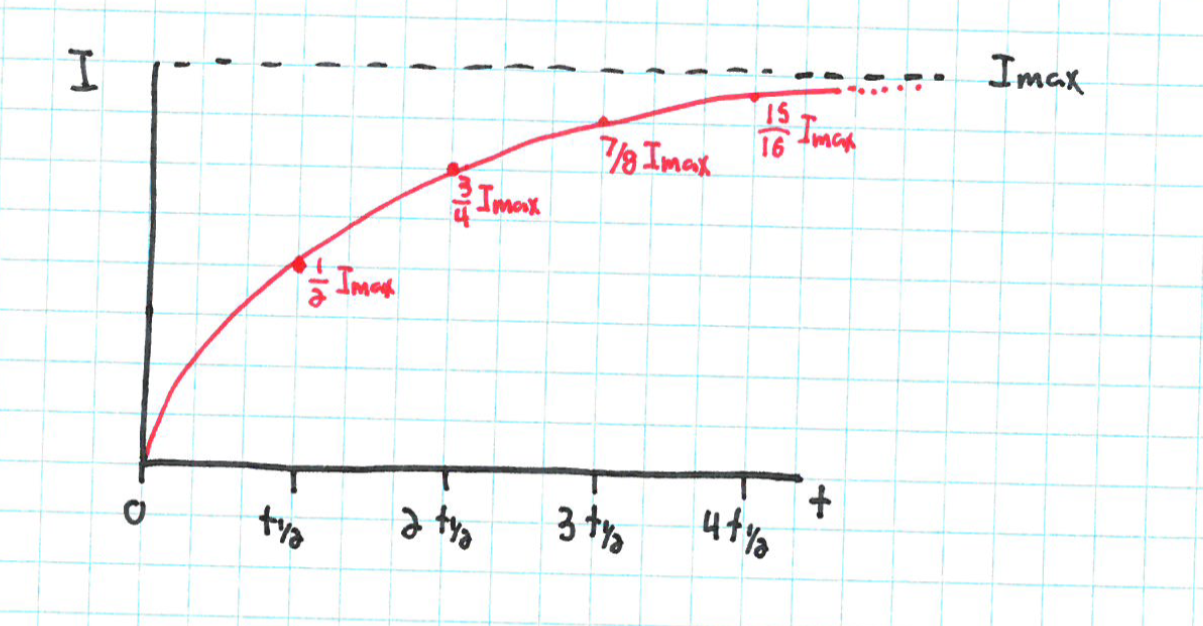 I
Imax
15/16 Imax
7/8 Imax
3/4 Imax
1/2 Imax
0 t1/2 2 t1/2 3 t1/2 4 t1/2 t